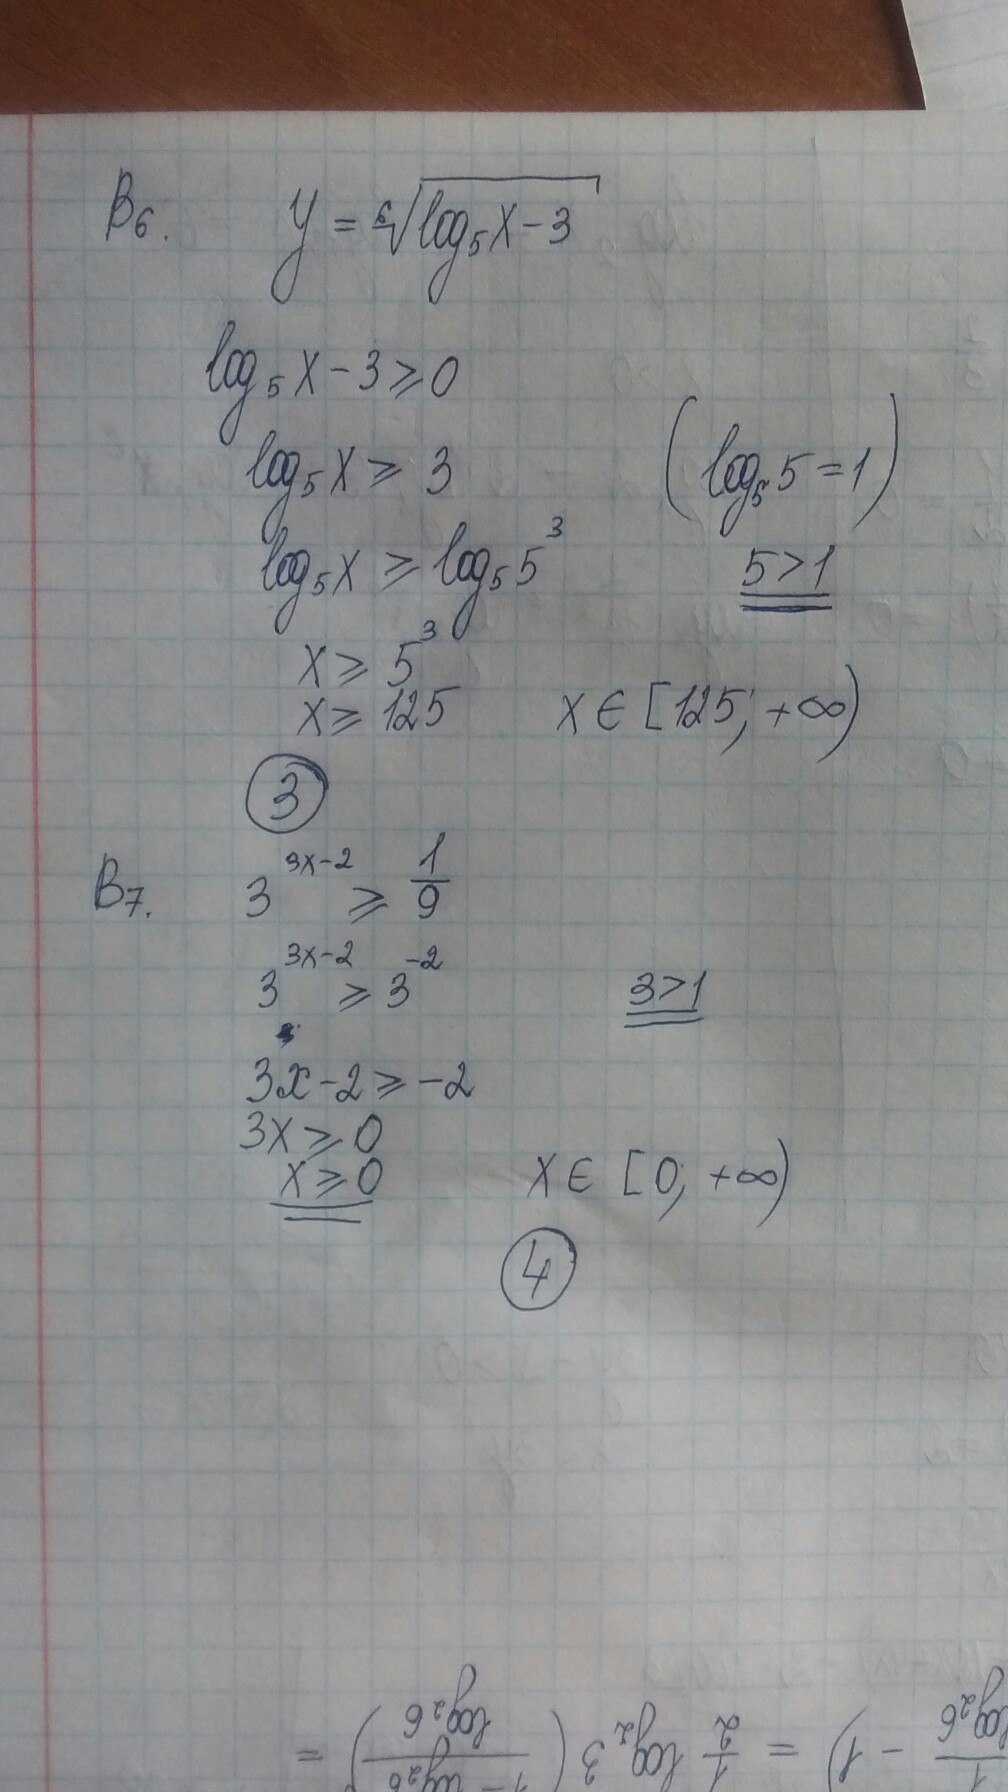 B6. y = ⁶√(log₅x − 3)
log₅x − 3 ⩾ 0
log₅x ⩾ 3 (log₅5 = 1)
log₅x ⩾ log₅5³ 5>1
x ⩾ 5³
x ⩾ 125 x ∈ [125; +∞)
3
B7. 3^(3x−2) ⩾ 1/9
3^(3x−2) ⩾ 3^(−2) 3>1
3x − 2 ⩾ −2
3x ⩾ 0
x ⩾ 0 x ∈ [0; +∞)
4